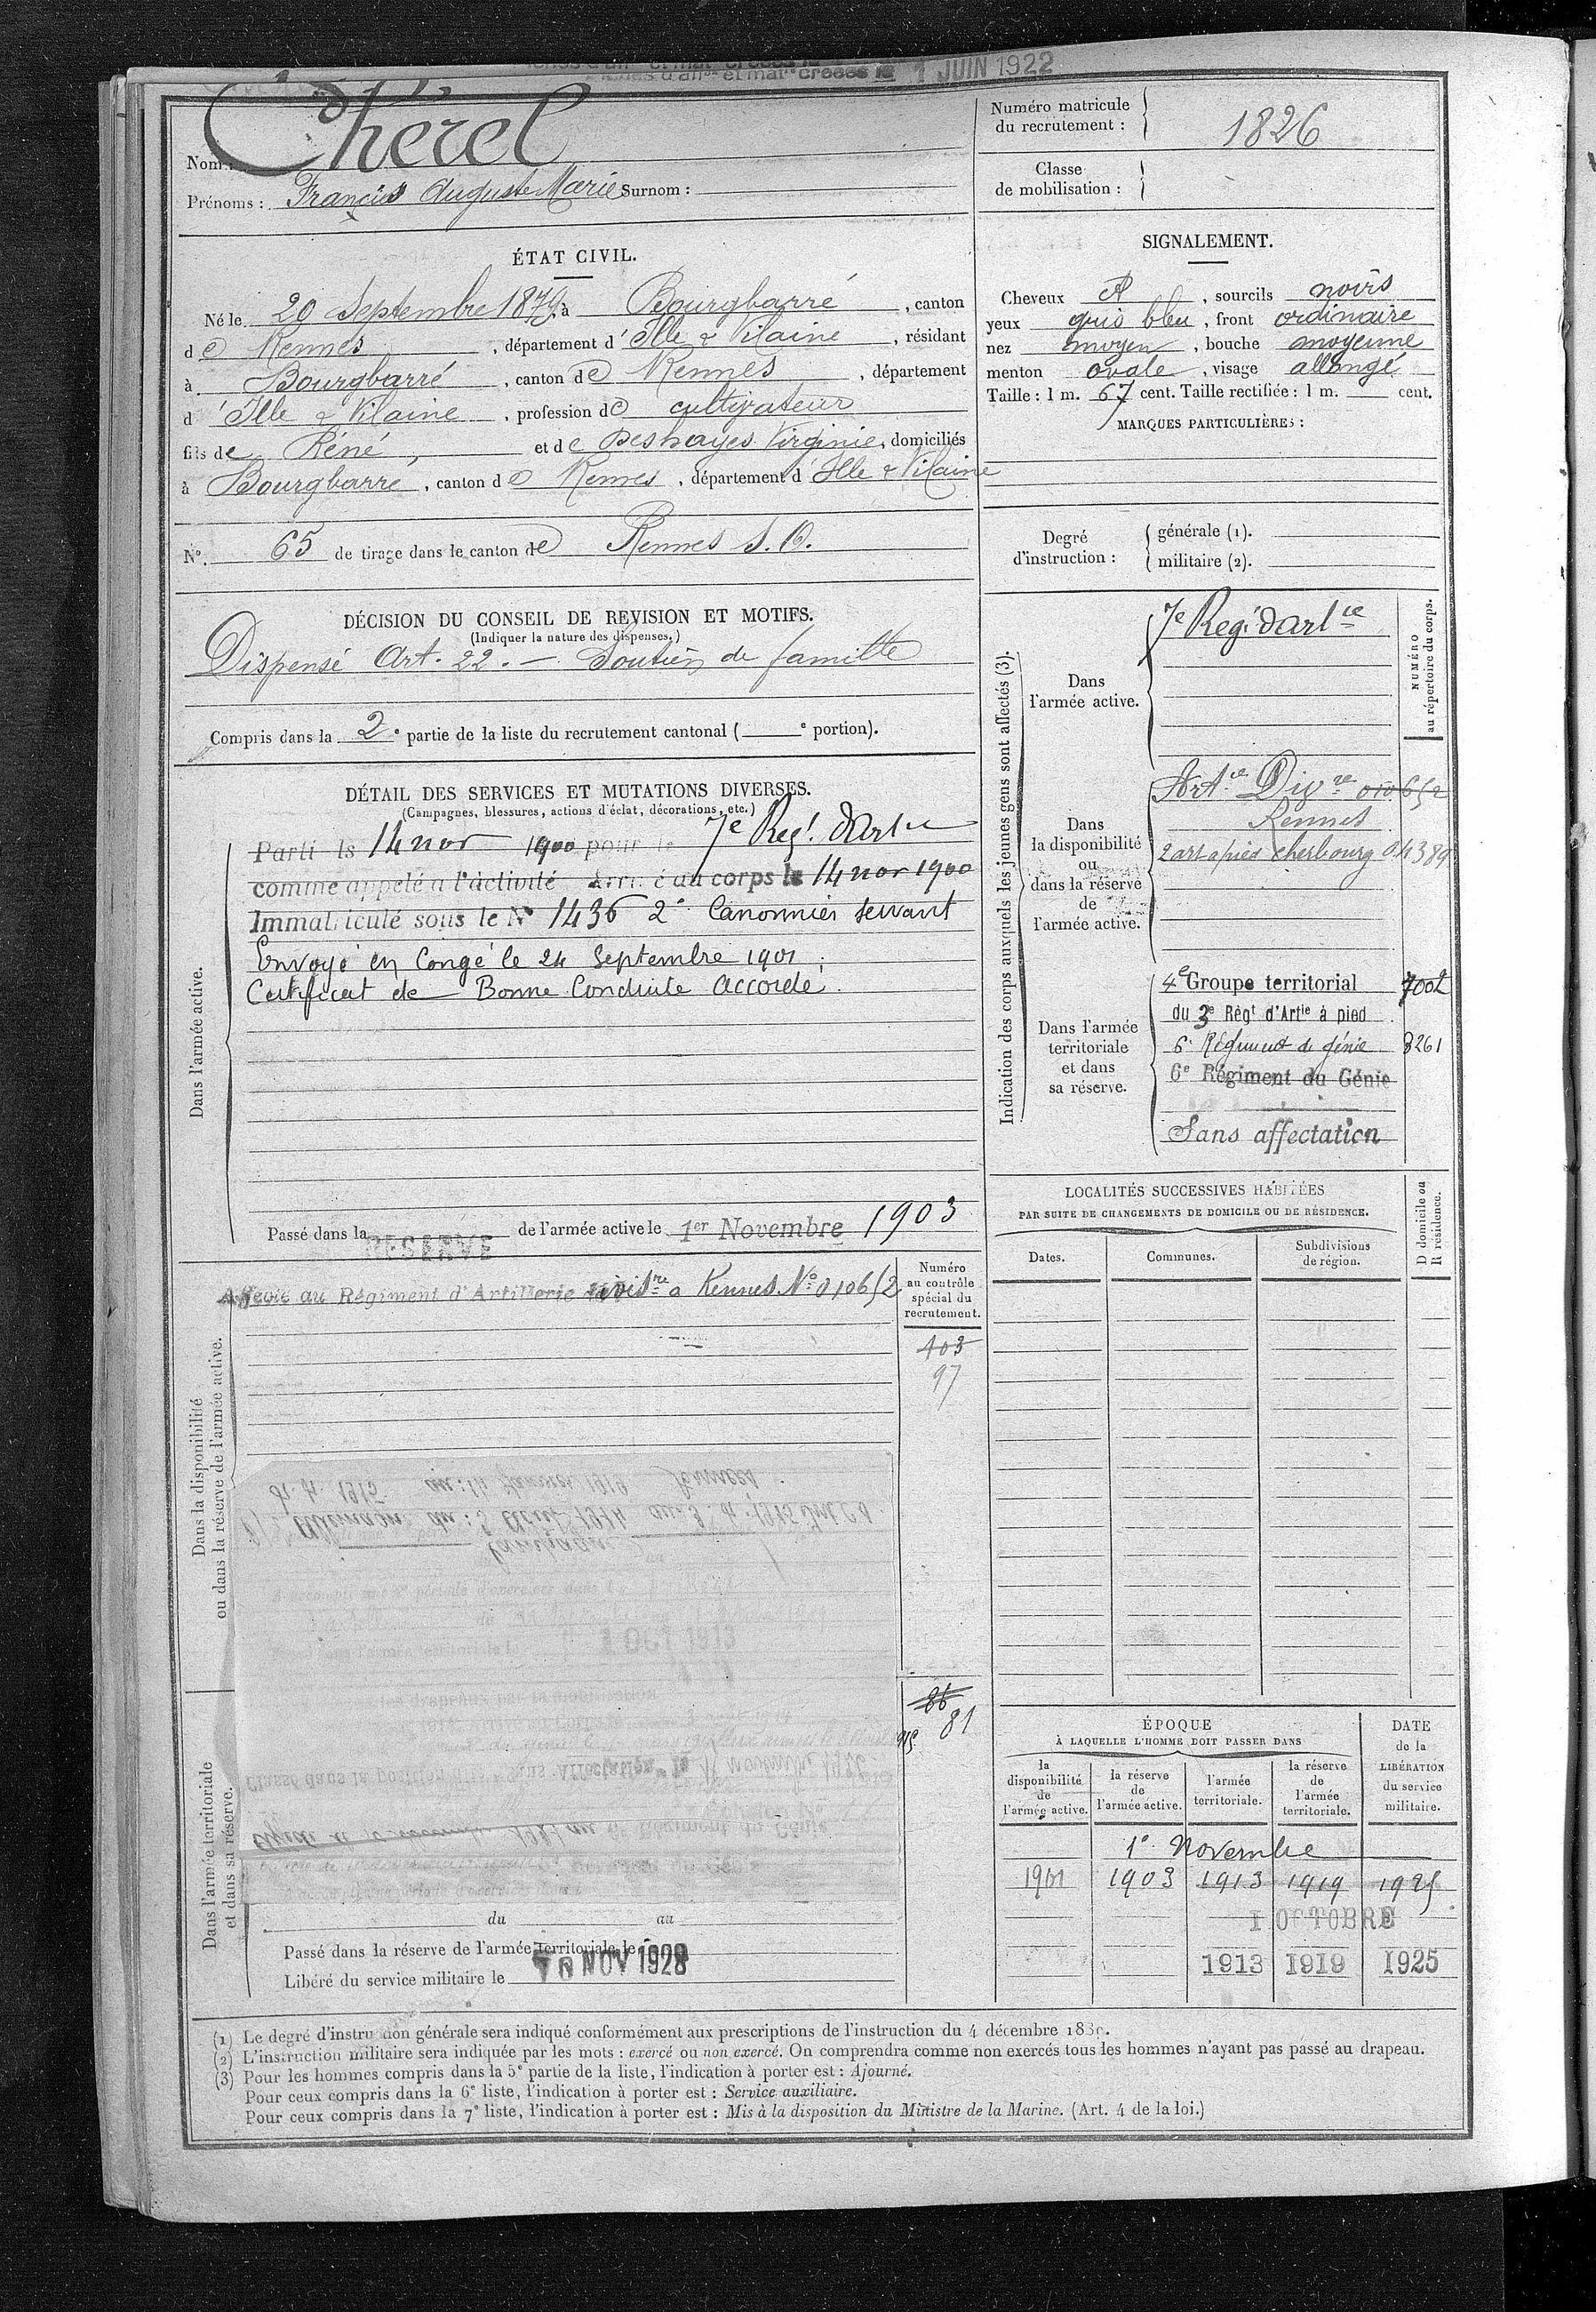 1 JUIN 1922
Nom : Cherel
Prénoms : François Auguste Marie Surnom :
Numéro matricule
du recrutement : 1826
Classe
de mobilisation :
ÉTAT CIVIL.
Né le 29 Septembre 1879, à Bourgbarré, canton
de Rennes, département d'Ille & Vilaine, résidant
à Bourgbarré, canton de Rennes, département
d'Ille & Vilaine, profession de cultivateur
fils de Réné, et de Deshayes Virginie, domiciliés
à Bourgbarré, canton de Rennes, département d'Ille & Vilaine
N°. 65 de tirage dans le canton de Rennes S. O.
DÉCISION DU CONSEIL DE REVISION ET MOTIFS.
(Indiquer la nature des dispenses.)
Dispensé Art. 22. — Soutien de famille
Compris dans la 2e partie de la liste du recrutement cantonal ( e portion).
DÉTAIL DES SERVICES ET MUTATIONS DIVERSES.
(Campagnes, blessures, actions d'éclat, décorations, etc.)
Dans l'armée active.
Parti le 14 nov 1900 pour le 7e Regt d'Artie
comme appelé à l'activité Arrivé au corps le 14 nov 1900
Immatriculé sous le N° 1436 2e Canonnier servant
Envoyé en Congé le 24 Septembre 1901.
Certificat de Bonne Conduite Accordé.
Passé dans la RÉSERVE de l'armée active le 1er Novembre 1903
Dans la disponibilité
ou dans la réserve de l'armée active.
Affecté au Régiment d'Artillerie Divisre a Rennes N° 010652
Numéro
au contrôle
spécial du
recrutement.
403
97
86
81
Dans l'armée territoriale
et dans sa réserve.
1 OCT 1913
du au
Passé dans la réserve de l'armée territoriale le
Libéré du service militaire le 10 NOV 1928
SIGNALEMENT.
Cheveux d, sourcils noirs
yeux gris bleu, front ordinaire
nez moyen, bouche moyenne
menton ovale, visage allongé
Taille : 1 m. 67 cent. Taille rectifiée : 1 m. cent.
MARQUES PARTICULIÈRES :
Degré
d'instruction :
générale (1).
militaire (2).
Indication des corps auxquels les jeunes gens sont affectés (3).
NUMÉRO
au répertoire du corps.
Dans
l'armée active.
7e Reg. d'artie
Dans
la disponibilité
ou
dans la réserve
de
l'armée active.
Artie Divre 010652
Rennes
2 art à pied Cherbourg 04389
Dans l'armée
territoriale
et dans
sa réserve.
4e Groupe territorial 7002
du 3e Règt d'Artie à pied
6e Régiment de génie 3261
6e Régiment du Génie
Sans affectation
LOCALITÉS SUCCESSIVES HABITÉES
PAR SUITE DE CHANGEMENTS DE DOMICILE OU DE RÉSIDENCE.
D domicile ou
R résidence.
Dates. Communes. Subdivisions
de région.
ÉPOQUE
À LAQUELLE L'HOMME DOIT PASSER DANS
DATE
de la
LIBÉRATION
du service
militaire.
la
disponibilité
de
l'armée active.
la réserve
de
l'armée active.
l'armée
territoriale.
la réserve
de
l'armée
territoriale.
1er Novembre
1901 1903 1913 1919 1925
1 OCTOBRE
1913 1919 1925
(1) Le degré d'instruction générale sera indiqué conformément aux prescriptions de l'instruction du 4 décembre 1889.
(2) L'instruction militaire sera indiquée par les mots : exercé ou non exercé. On comprendra comme non exercés tous les hommes n'ayant pas passé au drapeau.
(3) Pour les hommes compris dans la 5e partie de la liste, l'indication à porter est : Ajourné.
Pour ceux compris dans la 6e liste, l'indication à porter est : Service auxiliaire.
Pour ceux compris dans la 7e liste, l'indication à porter est : Mis à la disposition du Ministre de la Marine. (Art. 4 de la loi.)